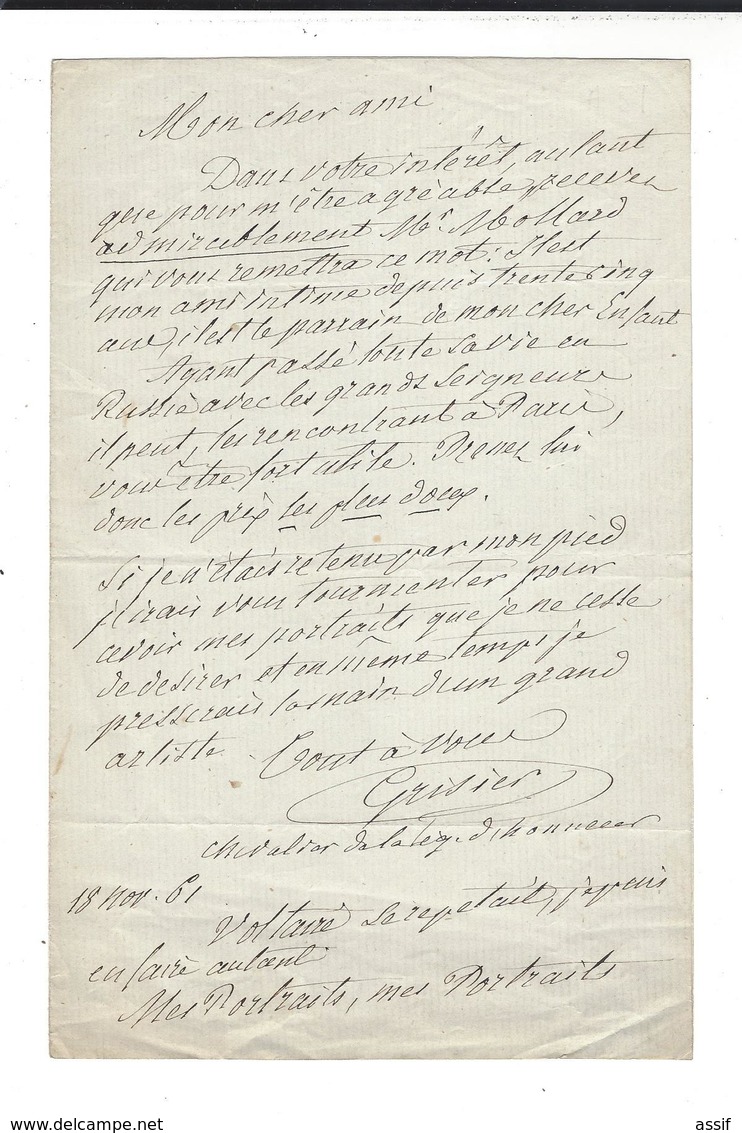 Mon cher ami
Dans votre intérêt, autant
que pour m'être agréable, recevez
admirablement Mr. Mollard
qui vous remettra ce mot : Il est
mon ami intime depuis trente cinq
ans, il est le parrain de mon cher Enfant
Ayant passé toute sa vie en
Russie avec les grands Seigneurs
il peut, les rencontrant à Paris,
vous être fort utile. Prenez lui
donc les prix les plus doux.
Si je n'étais retenu par mon pied
j'irais vous tourmenter pour
avoir mes portraits que je ne cesse
de desirer et en même temps je
presserais la main d'un grand
artiste. Tout à vous
Grisier
chevalier de la Lég. d'honneur
18 nov. 61
Voltaire se repetait, je puis
en faire autant
Mes Portraits, mes Portraits
www.delcampe.net
assif